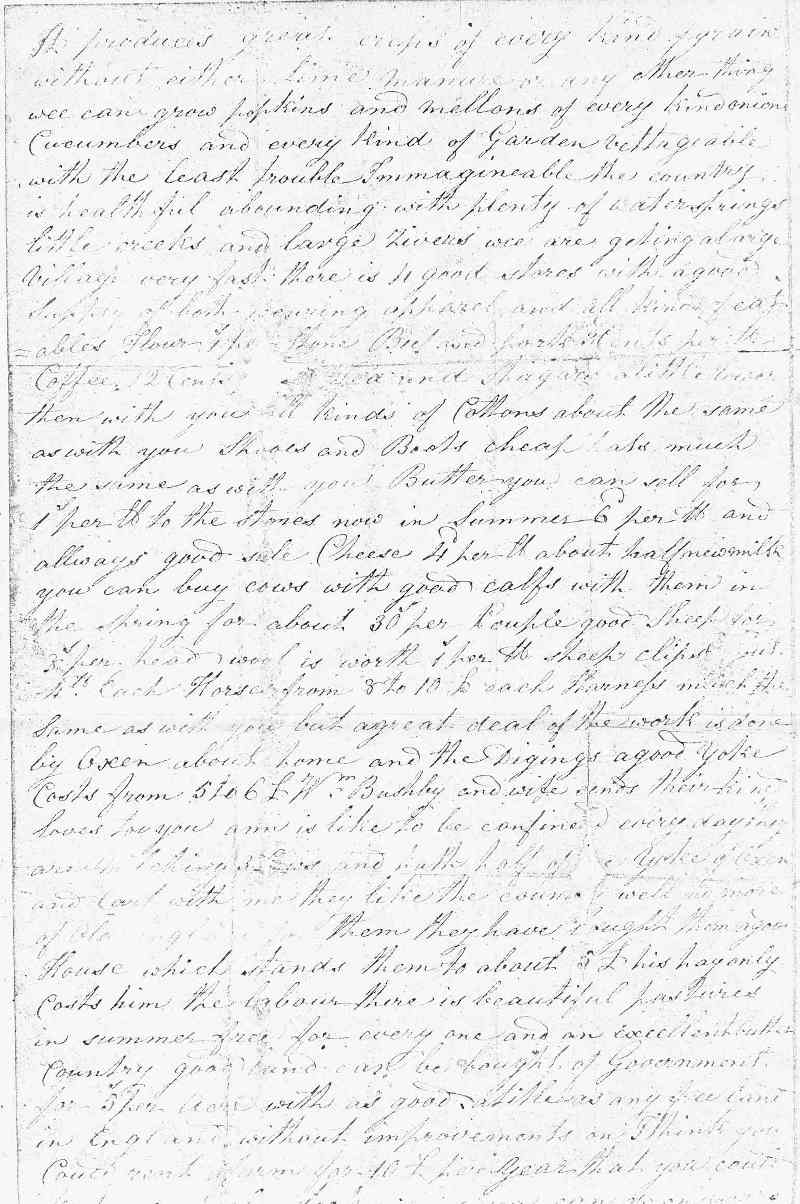 It produces great crops of every kind of grain
without either lime manure or any other thing
wee can grow popkins and mellons of every kind onions
Cucumbers and every kind of Garden vettageable
with the least trouble Immagineable the country
is healthful abounding with plenty of watersprings
little creeks and large Rivers wee are geting a large
Village very fast there is 4 good stores with a good
Supply of both wearing apparel and all kinds of eat-
=ables Flour 1s per Stone Beef and pork cents per lb
Coffee 12 Cents and Shugar a little lower
then with you all kinds of Cottons about the same
as with you Shooes and Boots cheap hats much
the same as with you Butter you can sell for
1s per lb to the stores now in Summer 6d per lb and
allways good sale Cheese 4d per lb about half newmilk
you can buy cows with good calfs with them in
the Spring for about 30s per Couple good Sheep for
per head wool is worth 1s per lb sheep clips
4 lbs Each Horses from 8 to 10 £ each Harness much the
Same as with you but a great deal of the work is done
by Oxen about home and the Digings a good Yoke
Costs from 5 to 6 £ Wm Bushby and wife sends their kind
loves to you ann is like to be confined every day
and hath half of Yoke of Oxen
and Cart with me they like the country well no more
of old them they have bought them a good
House which stands them to about 5 £ his hay only
Costs him the labour there is beautiful pastures
in summer free for every one and an excellent butter
Country good land can be bought of Government
for 5s per Acre with as good a title as any free land
in England without improvements on I think you
Could rent a farm for 40 £ per Year that you could